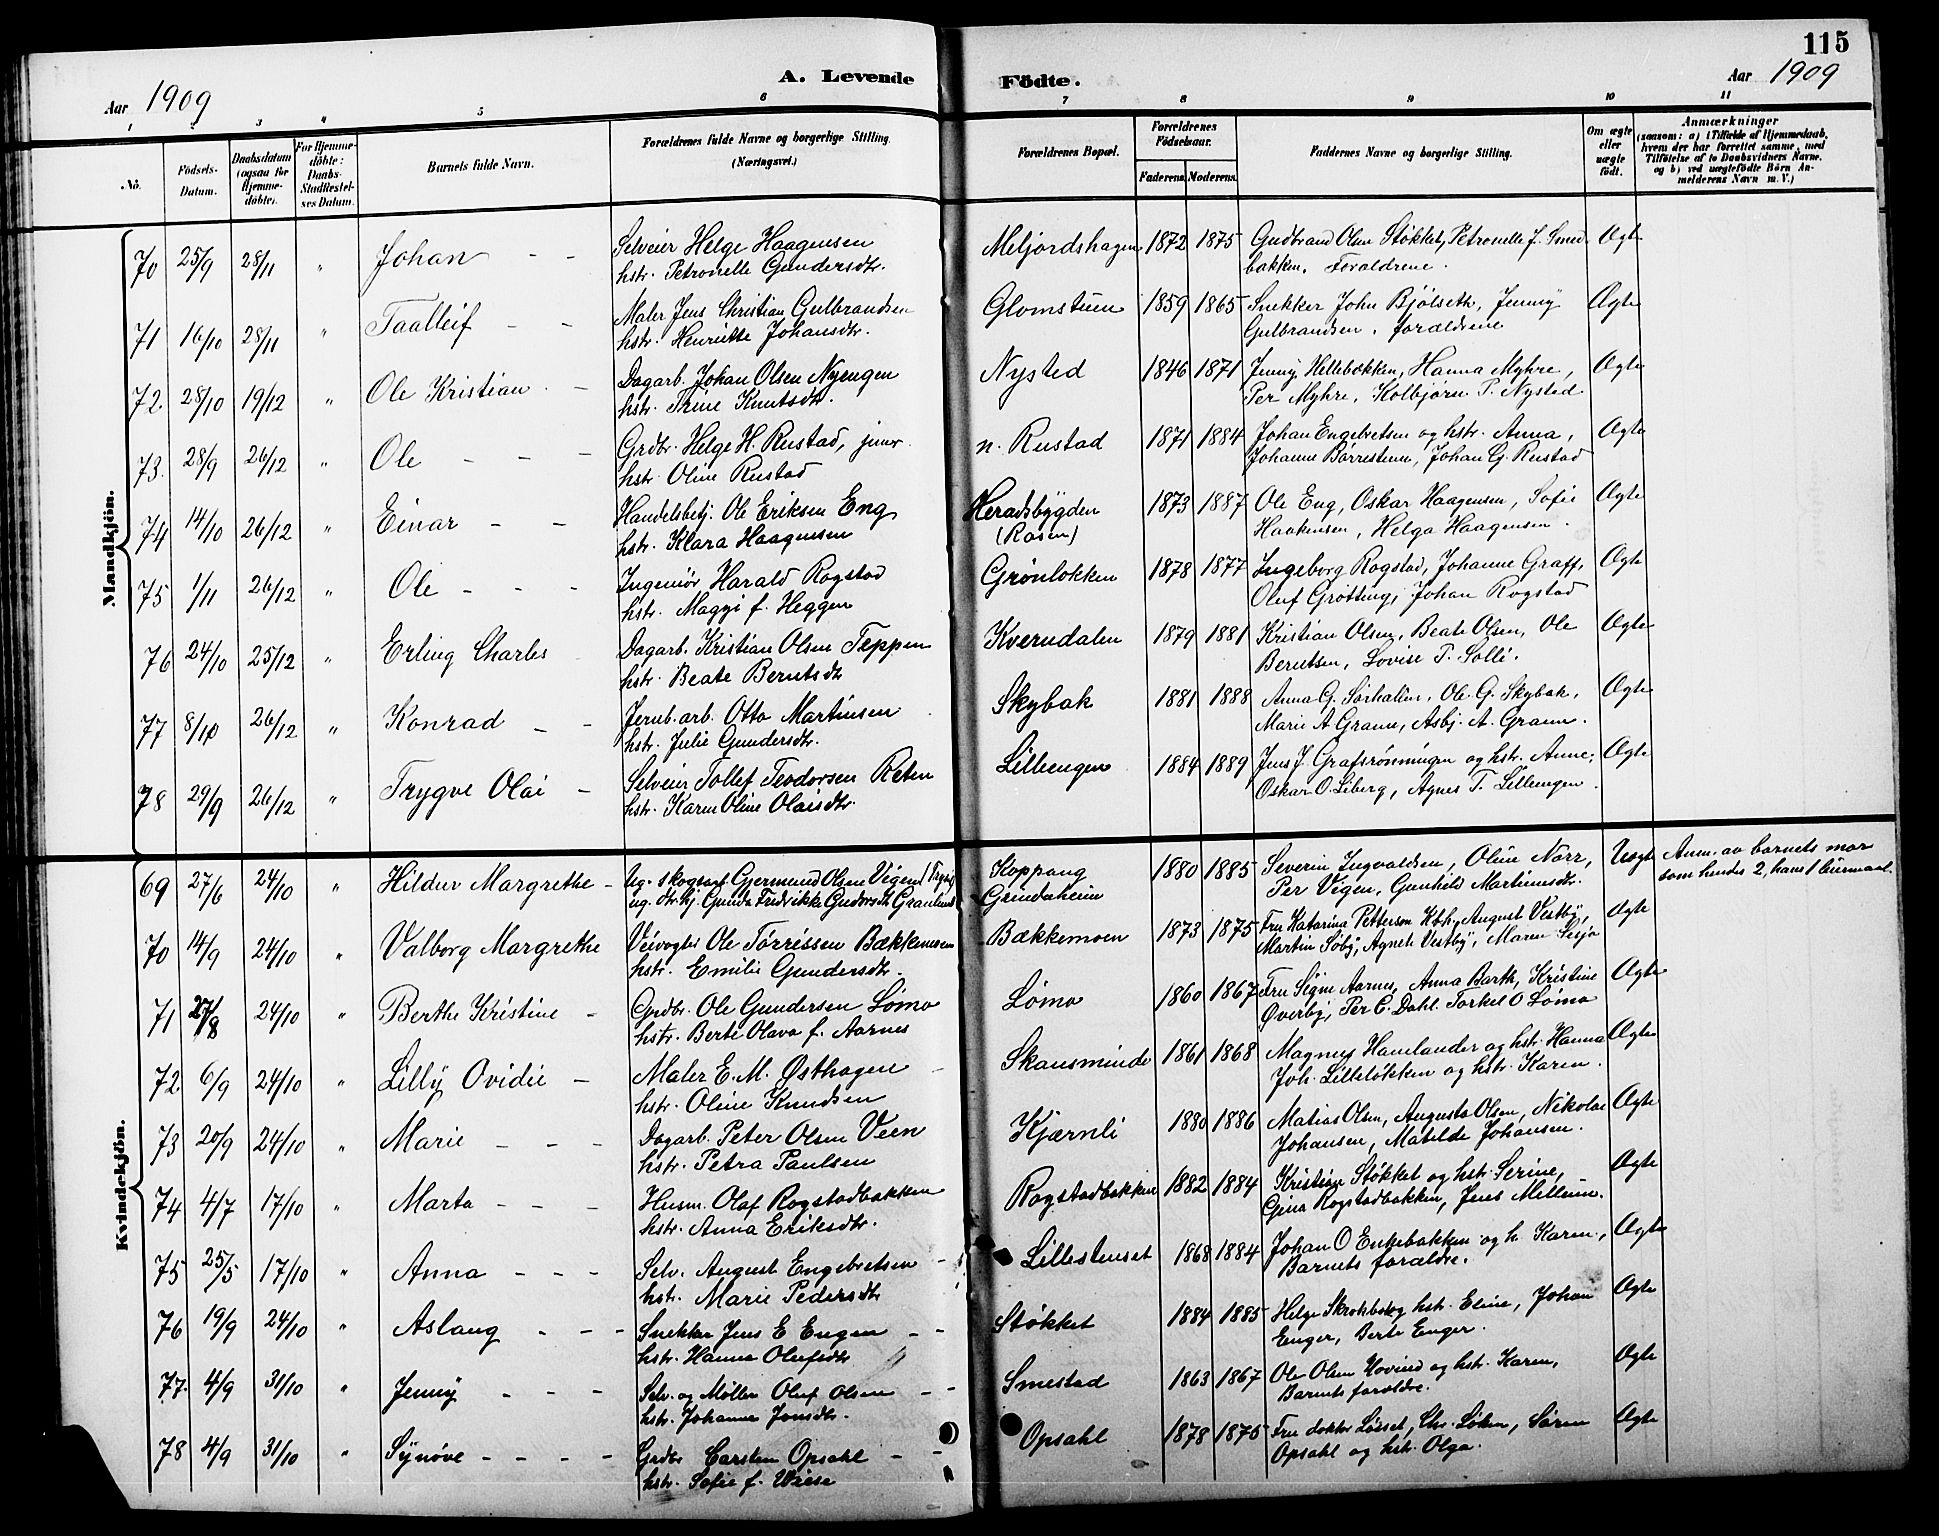 115
Aar 1909
A. Levende
Födte.
Aar 1909
1 2 3 4 5 6 7 8 9 10 11
No.
Födsels-
Datum.
Daabsdatum
(ogsaa for
Hjemme-
döbte).
For Hjemme-
döbte:
Daabs-
Stadfæstel-
ses Datum.
Barnets fulde Navn.
Forældrenes fulde Navne og borgerlige Stilling.
(Næringsvei.)
Forældrenes Bopæl.
Forældrenes
Födselsaar.
Faderens. Moderens.
Faddernes Navne og borgerlige Stilling.
Om ægte
eller
uægte
födt.
Anmærkninger
(saasom: a) i Tilfælde af Hjemmedaab,
hvem der har forrettet samme, med
Tilföielse af to Daabsvidners Navne.
og b) ved uægtefödte Börn An-
melderens Navn m. V.)
Mandkjön.
70 25/9 28/11 " Johan - - Selveier Helge Haagensen Meljordshagen 1872 1875 Gudbrand Olsen Støkket, Petronelle J. Smed- Ægte
hstr. Petronelle Gundersdtr. bakken. Forældrene.
71 16/10 28/11 " Taalleif - - Maler Jens Christian Gulbrandsen Glomstuen 1859 1865 Snekker John Bjølseth, Jenny Ægte
hstr. Henriette Johansdtr. Gulbrandsen, forældrene
72 28/10 19/12 " Ole Kristian - Dagarb. Johan Olsen Nyengen Nysted 1846 1871 Jenny Hellebækken, Hanna Myhre, Ægte
hstr. Trine Knutsdtr. Per Myhre, Kolbjørn P. Nysted
73 28/9 26/12 " Ole - - - Grdbr. Helge H. Rustad, junr. n. Rustad 1871 1884 Johan Engebretsen og hstr. Anna, Ægte
hstr. Oline Rustad Johanne Børrestuen, Johan G. Rustad
74 14/10 26/12 " Einar - - Handelsbetj. Ole Eriksen Eng Heradsbygden 1873 1887 Ole Eng, Oskar Haagensen, Sofie Ægte
hstr. Klara Haagensen (Rosen) Haakensen, Helga Haagensen.
75 1/11 26/12 " Ole - - - Ingeniør Harald Rogstad Grønlokken 1878 1877 Ingeborg Rogstad, Johanne Graff, Ægte
hstr. Maggi f. Heggen Oluf Grøtting, Johan Rogstad
76 24/10 25/12 " Erling Charles Dagarb. Kristian Olsen Teppen Kverndalen 1879 1881 Kristian Olsen, Beate Olsen, Ole Ægte
hstr. Beate Berntsdtr Berntsen, Lovise T. Solli.
77 8/10 26/12 " Konrad - - Jernb.arb. Otto Martinsen Skybak 1881 1888 Anna G. Sørhalin, Ole G. Skybak, Ægte
hstr. Julie Gundersdtr. Marie A Graner, Asbj. A. Graner.
78 29/9 26/12 " Trygve Olai - Selveier Tollef Teodorsen Reten Lillengen 1884 1889 Jens J. Grafsrønningen og hstr. Anne, Ægte
hstr. Karen Oline Olaisdtr. Oskar O. Liberg, Agnes T. Lillengen.
Kvindekjön.
69 27/6 24/10 " Hildur Margrethe - Ug. skogsarb Gjermund Olsen Vigen (Trysil) Koppang 1880 1885 Severin Ingvaldsen, Oline Norr, Uægte Anm. av barnets mor
ug. Gunda Fredrikke Gudorsdtr Granlund Grindaheim Per Vigen, Gunhild Martinusdtr. som hendes 2, hans 1 leiermaal.
70 14/9 24/10 " Valborg Margrethe Veivogter Ole Tørrissen Bækkemoen Bækkemoen 1873 1875 Fru Katarina Petterson Kbh., August Vestby, Ægte
hstr. Emilie Gundersdtr. Martin Søby, Agnete Vestby, Maren Sesjø
71 27/8 24/10 " Berthe Kristine - Grdbr. Ole Gundersen Lømo Lømo 1860 1867 Fru Signe Aarnes, Anna Barth, Kristine Ægte
hstr. Berte Olava f. Aarnes Øverby, Per C. Dahl. Torkel O Lømo
72 6/9 24/10 " Lilly Ovidie - Maler E. M. Østhagen Skansminde 1861 1868 Magnus Hamlander og hstr. Hanna Ægte
hstr. Oline Knudsen Joh. Lilleløkken og hstr. Karen.
73 20/9 24/10 " Marie - - - Dagarb. Peter Olsen Veen Kjærnli 1880 1886 Matias Olsen, Augusta Olsen, Nikolai Ægte
hstr. Petra Paulsen Johansen, Matilde Johansen.
74 4/7 17/10 " Marta - - - Husm. Olaf Rogstadbakken Rogstadbakken 1882 1884 Kristian Støkket og hstr. Serine, Ægte
hstr. Anna Eriksdtr. Gina Rogstadbakken, Jens Mellum.
75 25/5 17/10 " Anna - - - Selv. August Engebretsen Lillestenset 1868 1884 Johan O Enkebakken og h. Karen, Ægte
hstr. Marie Pedersdtr Barnets forældre.
76 19/9 24/10 " Aslaug - - - Snekker Jens E Engen - - Støkket 1884 1885 Helge Skrokbæk og hstr. Eline, Johan Ægte
hstr. Hanna Olufsdtr Enger, Berte Enger.
77 4/9 31/10 " Jenny - - - Selv. og Møller Oluf Olsen - - Smestad 1863 1867 Ole Olsen Hovind og hstr. Karen, Ægte
hstr. Johanne Jonsdtr. Barnets forældre.
78 4/9 31/10 " Synøve - - - - Grdbr Carsten Opsahl - - Opsahl 1878 1875 Fru doktor Løsset, Chr. Løken, Søren Ægte
hstr. Sofie f. Wiese Opsahl og hstr. Olga.